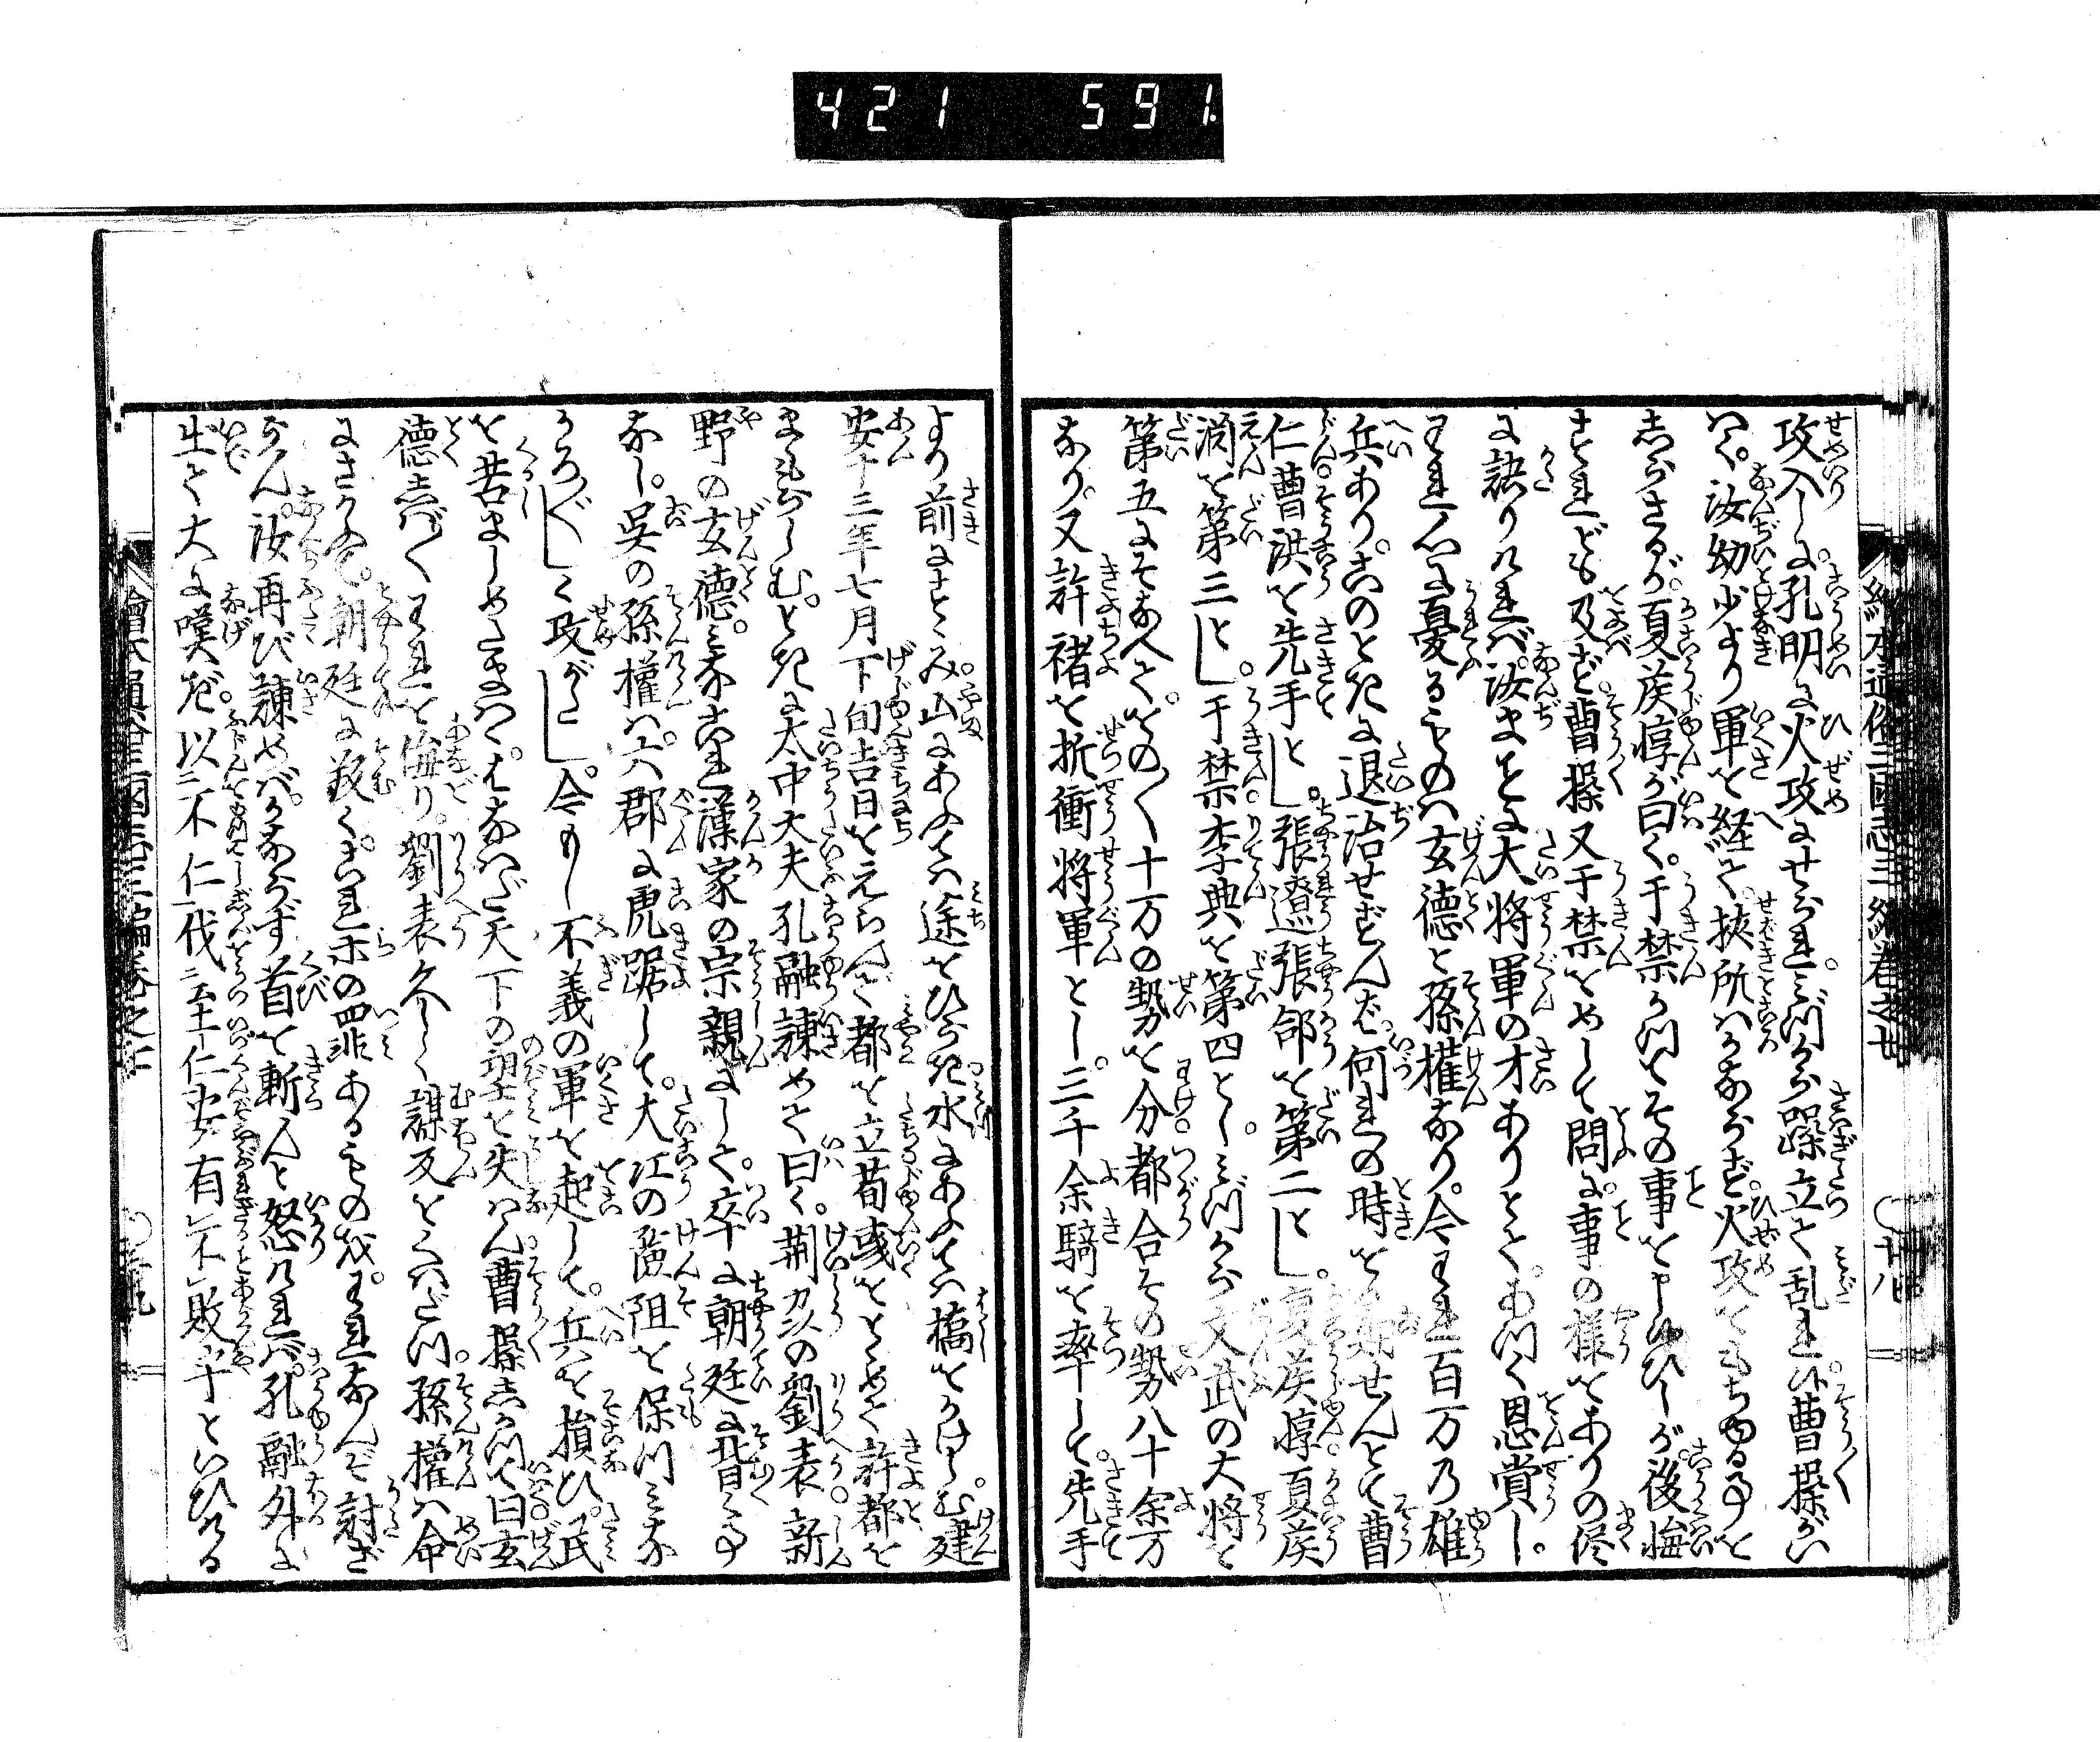 421 591
攻入しに。孔明に火攻にせられ。みづから躁立て乱れ候。曹操がい
はく。汝幼少より軍を経て。挟所はかならず。火攻をもちゆる事を
しらざるか。夏侯惇が曰く。于禁かつてその事を申ゆひしが。後悔
すれども及ず。曹操又于禁をめして問に。事の様をありの侭
に訣りければ。汝まことに大将軍の才ありとて。あつく恩賞し。
われ心に憂るものは玄徳と孫権なり。今われ百万乃雄
兵あり。このときに退治せずんば。何れの時をか期せんとて。曹
仁曹洪を先手とし。張遼張郃を第二とし。夏侯惇夏侯
淵を第三とし。于禁李典を第四とし。みづから文武の大将を
第五にそなへて。おの〳〵十万の勢を分。都合その勢八十余万
なり。又許褚を折衝将軍とし。三千余騎を率して。先手
より前にすゝみ。山にあふては途をひらき水にあふては橋をかけしむ。建
安十三年七月下旬吉日をえらんで都を立。荀彧をとゞめて許都を
まもらしむ。ときに太中大夫孔融諫めて曰く。荆州の劉表新
野の玄徳。みなこれ漢家の宗親にして。卒に朝廷に背く事
なし。呉の孫權は。六郡に虎踞して。大江の嶮阻を保つ。みな
かろ〴〵しく攻がたし。今もし不義の軍を起して。兵を損ひ。民
を苦ましめたまはゞ。はなはだ天下の望を失はん。曹操しかつて曰玄
徳しば〳〵われを侮り。劉表久しく謀反をくはだつ。孫權は命
にさからふて。朝廷に敵く。これ等の罪あるものを。われなんぞ討ざ
らん。汝再び諫めば。かならず首を斬んと怒りければ。孔融外に
出て大に嘆き。以二不仁一伐二至仁一安有レ不レ敗乎といひける